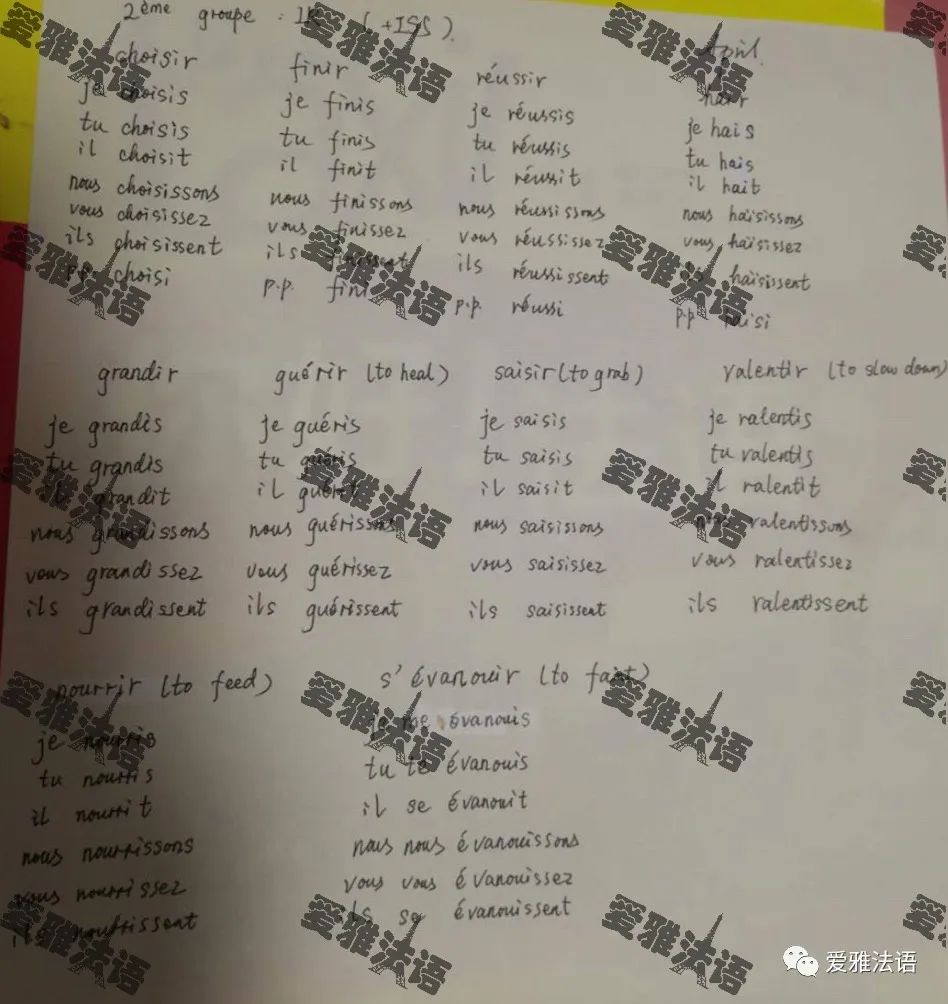 2ème groupe : IR (+ISS).
April.
choisir
je choisis
tu choisis
il choisit
nous choisissons
vous choisissez
ils choisissent
p.p. choisi
finir
je finis
tu finis
il finit
nous finissons
vous finissez
ils finissent
p.p. fini
réussir
je réussis
tu réussis
il réussit
nous réussissons
vous réussissez
ils réussissent
p.p. réussi
je hais
tu hais
il hait
nous haisissons
vous haisissez
ils haisissent
p.p. haisi
grandir
je grandis
tu grandis
il grandit
nous grandissons
vous grandissez
ils grandissent
guérir (to heal)
je guéris
tu guéris
il guérit
nous guérissons
vous guérissez
ils guérissent
saisir (to grab)
je saisis
tu saisis
il saisit
nous saisissons
vous saisissez
ils saisissent
ralentir (to slow down)
je ralentis
tu ralentis
il ralentit
nous ralentissons
vous ralentissez
ils ralentissent
nourrir (to feed)
je nourris
tu nourris
il nourrit
nous nourrissons
vous nourrissez
ils nourrissent
s'évanouir (to faint)
je me évanouis
tu te évanouis
il se évanouit
nous nous évanouissons
vous vous évanouissez
ils se évanouissent
爱雅法语